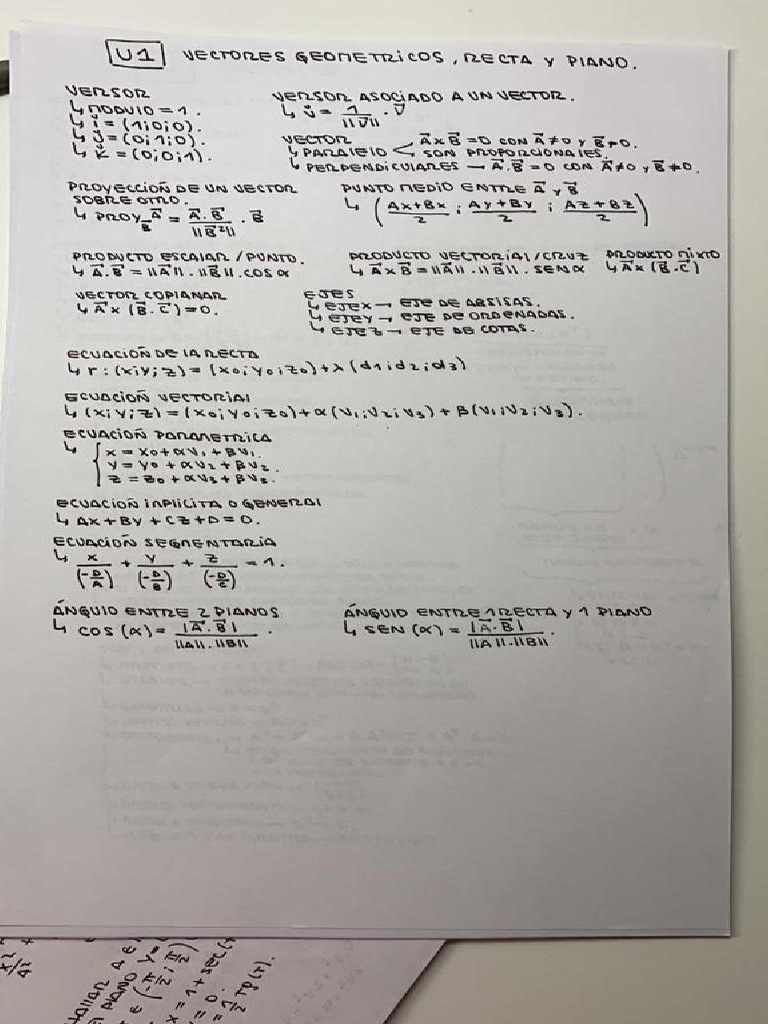 U1 VECTORES GEOMETRICOS, RECTA Y PLANO.
VERSOR
↳ MODULO = 1.
↳ i̇ = (1;0;0).
↳ j̇ = (0;1;0).
↳ k̇ = (0;0;1).
VERSOR ASOCIADO A UN VECTOR.
↳ v̌ = 1/||V⃗|| . V⃗
VECTOR
↳ PARALELO < A⃗xB⃗ = 0 CON A⃗≠0 Y B⃗≠0.
SON PROPORCIONALES.
↳ PERPENDICULARES → A⃗.B⃗ = 0 CON A⃗≠0 Y B⃗≠0.
PROYECCIÓN DE UN VECTOR
SOBRE OTRO.
↳ PROY_B⃗ A⃗ = A⃗.B⃗/||B⃗²|| . B⃗
PUNTO MEDIO ENTRE A⃗ Y B⃗
↳ (Ax+Bx/2 ; Ay+By/2 ; Az+Bz/2)
PRODUCTO ESCALAR / PUNTO.
↳ A⃗.B⃗ = ||A⃗||.||B⃗||.COS α
PRODUCTO VECTORIAL/CRUZ
↳ A⃗xB⃗ = ||A⃗||.||B⃗||.SEN α
PRODUCTO MIXTO
↳ A⃗x(B⃗.C⃗)
VECTOR COPLANAR
↳ A⃗x(B⃗.C⃗) = 0.
EJES
↳ EJE X → EJE DE ABSISAS.
↳ EJE Y → EJE DE ORDENADAS.
↳ EJE Z → EJE DE COTAS.
ECUACIÓN DE LA RECTA
↳ r: (x;y;z) = (x0;y0;z0)+λ(d1;d2;d3)
ECUACIÓN VECTORIAL
↳ (x;y;z) = (x0;y0;z0)+α(V1;V2;V3)+β(V1;V2;V3).
ECUACIÓN PARAMETRICA
↳ { x = x0+αV1+βV1.
y = y0+αV2+βV2.
z = z0+αV3+βV3.
ECUACIÓN IMPLICITA O GENERAL
↳ Ax+By+Cz+D=0.
ECUACIÓN SEGMENTARIA
↳ x/(-D/A) + y/(-D/B) + z/(-D/C) = 1.
ÁNGULO ENTRE 2 PLANOS
↳ COS(α) = |A⃗.B⃗|/||A||.||B|| .
ÁNGULO ENTRE 1 RECTA Y 1 PLANO
↳ SEN(α) = |A⃗.B⃗|/||A||.||B|| .
HALLAR A E
EL PLANO Y=
t ∈ (-π/2 ; π/2)
x = 1+sec(t
y = 0.
= 1/2 Tg(t).